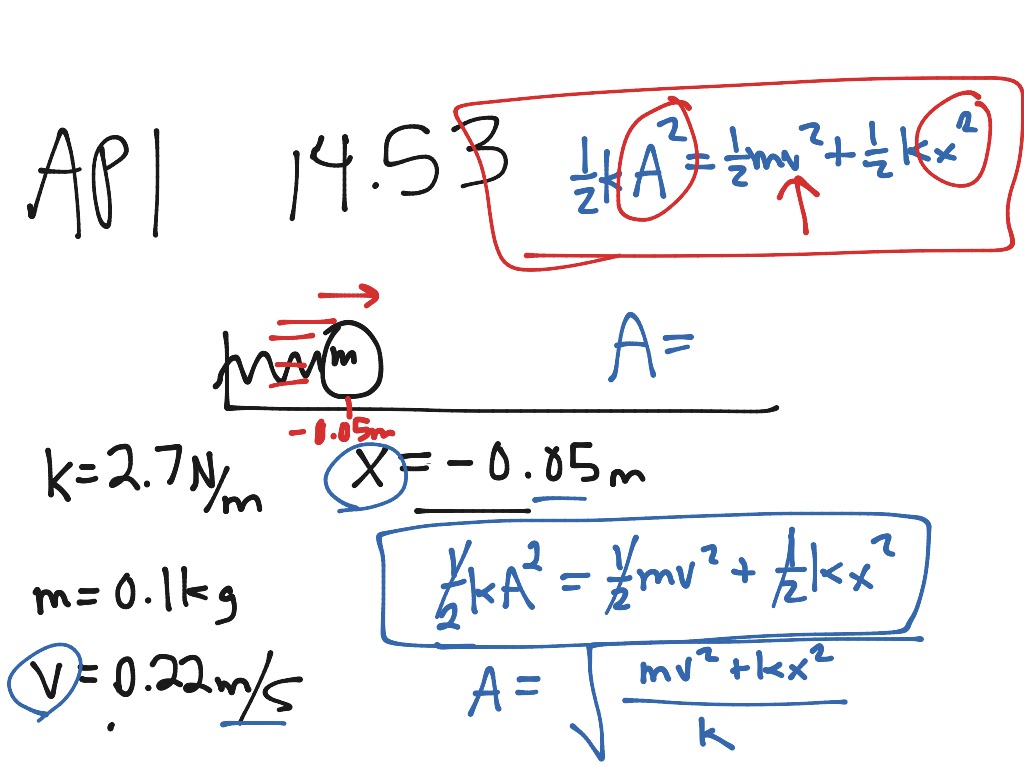 AP1 14.53
½kA² = ½mv² + ½kx²
m
A =
-0.05m
k = 2.7 N/m
x = -0.05m
m = 0.1kg
½kA² = ½mv² + ½kx²
v = 0.22 m/s
A = √((mv² + kx²)/k)